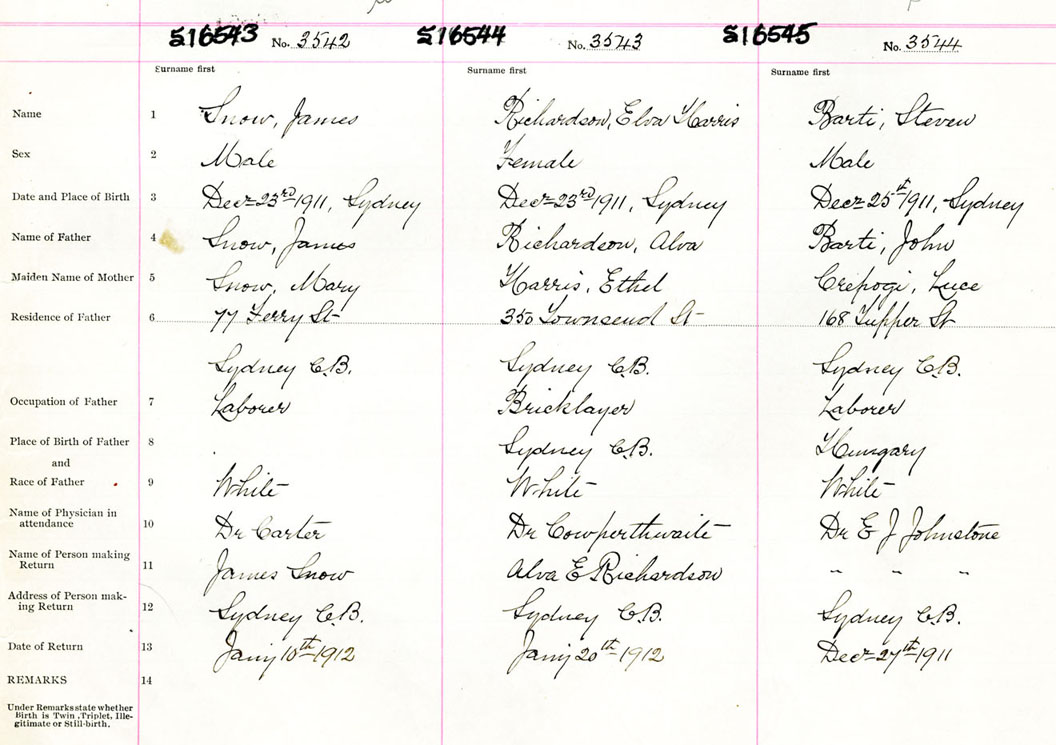 S16543 No. 3542 S16544 No. 3543 S16545 No. 3544
Surname first Surname first Surname first
Name 1 Snow, James Richardson, Elva Harris Barti, Steven
Sex 2 Male Female Male
Date and Place of Birth 3 Decr 23rd 1911, Sydney Decr 23rd 1911, Sydney Decr 25th 1911, Sydney
Name of Father 4 Snow, James Richardson, Alva Barti, John
Maiden Name of Mother 5 Snow, Mary Harris, Ethel Crepogi, Luce
Residence of Father 6 77 Ferry St 350 Townsend St 168 Tupper St
Sydney C.B. Sydney C.B. Sydney C.B.
Occupation of Father 7 Laborer Bricklayer Laborer
Place of Birth of Father 8 Sydney C.B. Hungary
and
Race of Father 9 White White White
Name of Physician in
attendance 10 Dr Carter Dr Cowperthwaite Dr E J Johnstone
Name of Person making
Return 11 James Snow Alva E Richardson " " "
Address of Person mak-
ing Return 12 Sydney C.B. Sydney C.B. Sydney C.B.
Date of Return 13 Jany 10th 1912 Jany 20th 1912 Decr 27th 1911
REMARKS 14
Under Remarks state whether
Birth is Twin, Triplet, Ille-
gitimate or Still-birth.